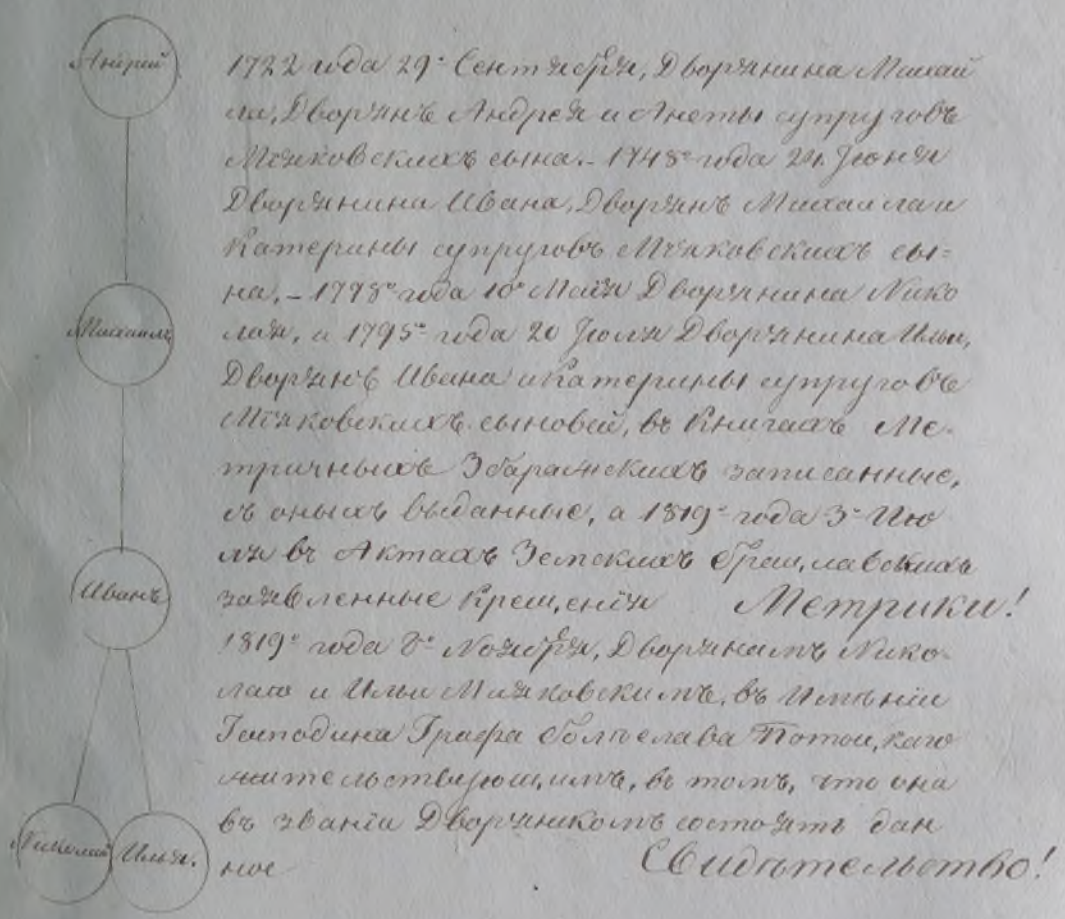 Андрей
1722 года 29го Сентября, Дворянина Михай
ла, Дворянъ Андрея и Анеты супруговъ
Мяковскихъ сына. – 1748го года 24 Іюня
Дворянина Ивана, Дворянъ Михаила и
Катерины супруговъ Мяковскихъ сы=
на, – 1778го года 10го Маія Дворянина Нико
Михаилъ
лая, и 1795го года 20 Іюля Дворянина Ильи,
Дворянъ Ивана и Катерины супруговъ
Мяковскихъ сыновей, въ Книгахъ Ме-
тричныхъ Збаражскихъ записанные,
съ оныхъ выданные, а 1819го года 3го Ию
ля въ Актахъ Земскихъ Брацлавскихъ
Иванъ
заявленные Крещенія Метрики!
1819го года 8го Ноября, Дворянамъ Нико-
лаю и Ильи Мяковскимъ, въ Имѣніи
Господина Графа Болеслава Потоцкаго
жительствующимъ, въ томъ, что они
въ званіи Дворянскомъ состоятъ дан
Николай Илья.
ное Свидѣтельство!